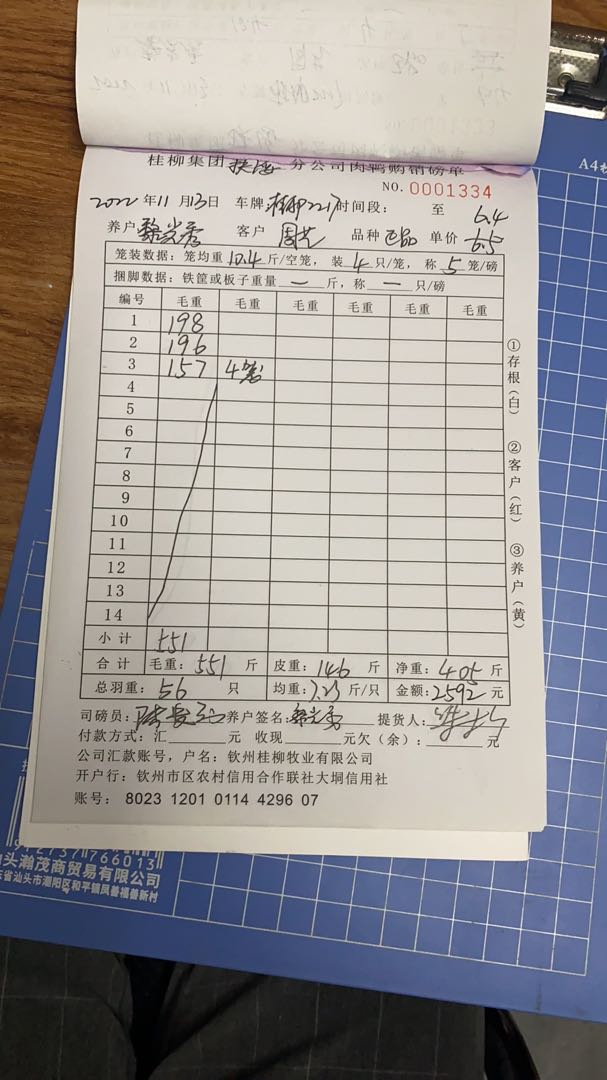 桂柳集团 分公司肉鸭购销磅单
NO. 0001334
2022年11月13日 车牌 桂柳2217 时间段: 至 6.4
养户 黎光秀 客户 周艺 品种 正品 单价 6.5
笼装数据: 笼均重 10.4 斤/空笼, 装 4 只/笼, 称 5 笼/磅
捆脚数据: 铁筐或板子重量 一 斤, 称 一 只/磅
编号 毛重 毛重 毛重 毛重 毛重 毛重
1 198
2 196
3 157 4笼
4
5
6
7
8
9
10
11
12
13
14
小计 551
合计 毛重: 551 斤 皮重: 146 斤 净重: 405 斤
总羽重: 56 只 均重: 7.23 斤/只 金额: 2592 元
司磅员: 养户签名: 黎光秀 提货人:
付款方式: 汇 元 收现 元欠(余): 元
公司汇款账号, 户名: 钦州桂柳牧业有限公司
开户行: 钦州市区农村信用合作联社大垌信用社
账号: 8023 1201 0114 4296 07
①存根(白)
②客户(红)
③养户(黄)
A4
766013
头瀚茂商贸有限公司
省汕头市潮阳区和平镇凤善福善新村